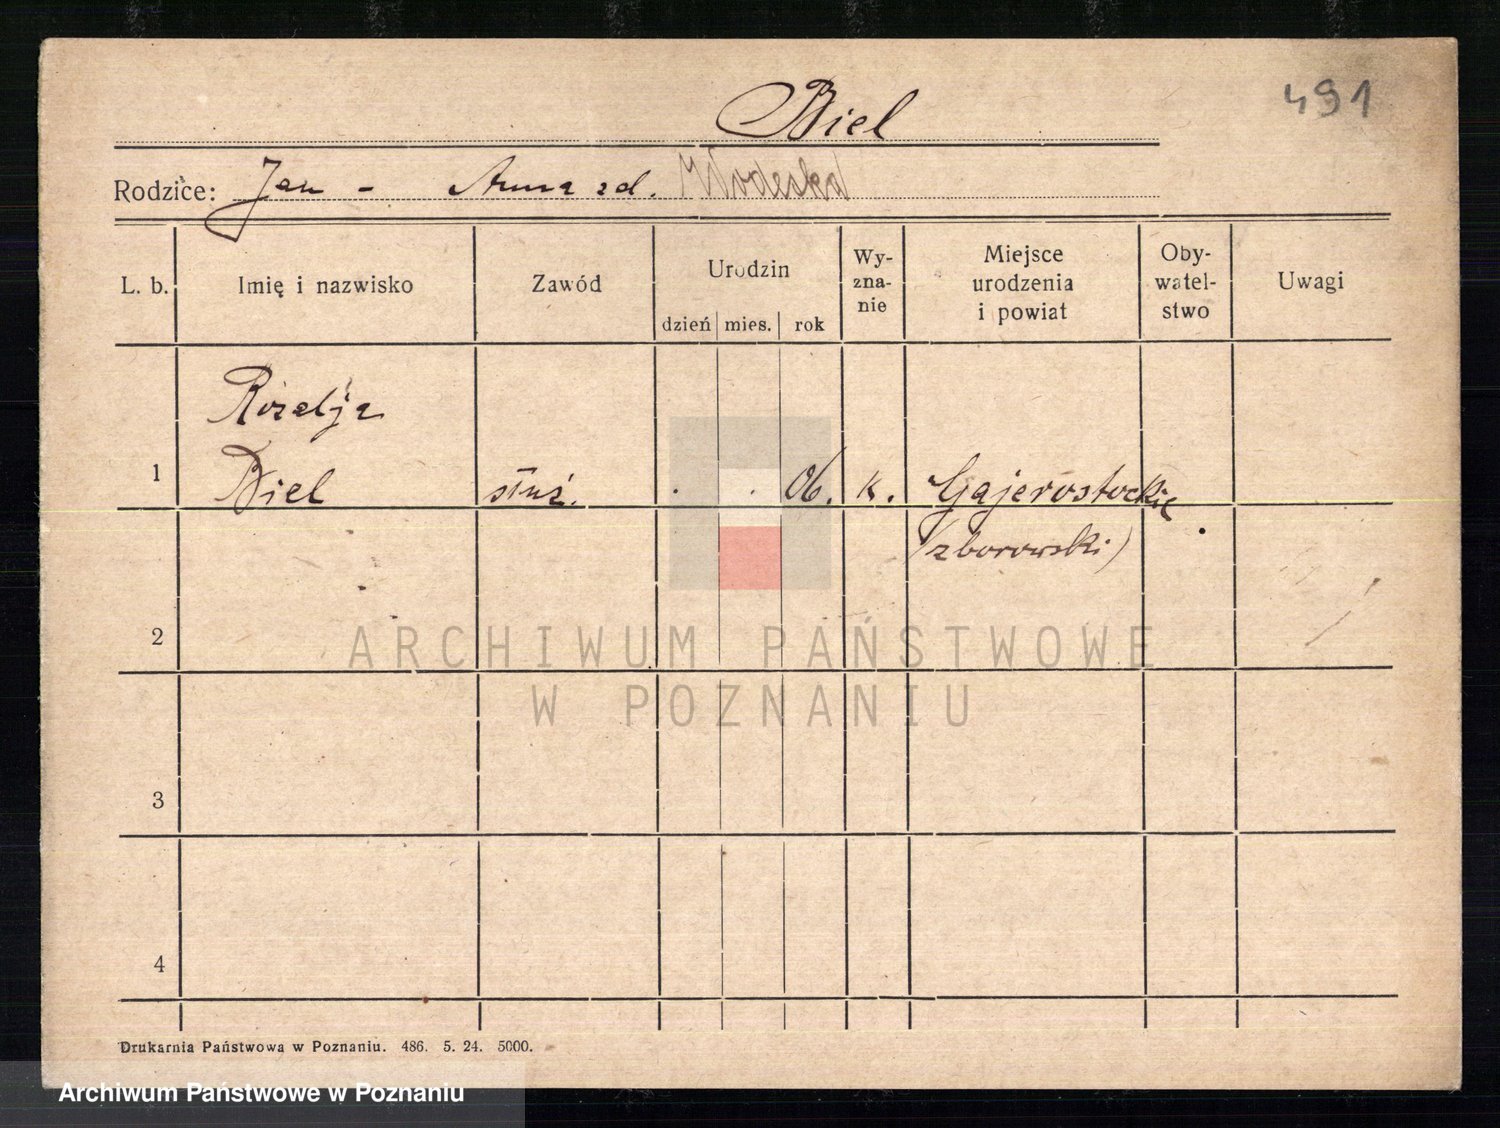 491
Biel
Rodzice: Jan - Anna zd.
L. b. Imię i nazwisko Zawód Urodzin dzień mies. rok Wy-zna-nie Miejsce urodzenia i powiat Oby-watel-stwo Uwagi
Rozalja
1 Biel służ. . . 06. k. Gajerostockie
(zborowski)
2
3
4
ARCHIWUM PAŃSTWOWE
W POZNANIU
Drukarnia Państwowa w Poznaniu. 486. 5. 24. 5000.
Archiwum Państwowe w Poznaniu